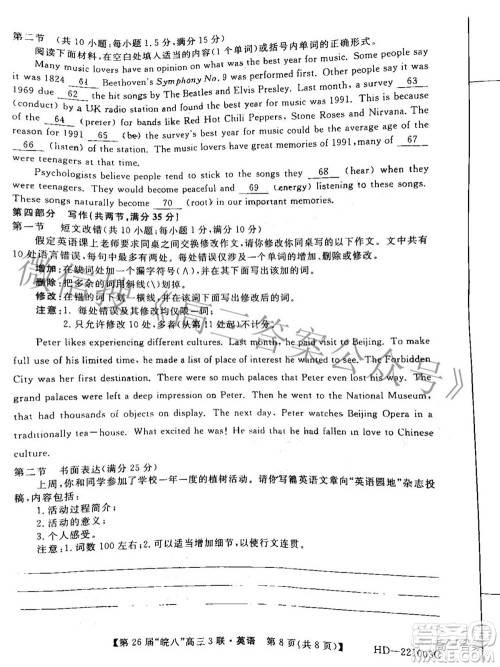 第二节 (共10小题;每小题1.5分,满分15分)
阅读下面材料,在空白处填入适当的内容(1个单词)或括号内单词的正确形式。
Many music lovers have an opinion on what was the best year for music. Some people say
it was 1824 61 Beethoven's Symphony No. 9 was performed first. Other people say the year
1969 due 62 the hit songs by The Beatles and Elvis Presley. Last month, a survey 63
(conduct) by a UK radio station and found the best year for music was 1991. Many people
of the 64 (preter) for bands like Red Hot Chili Peppers, Stone Roses and Nirvana. The
reason for 1991 65 (be) the survey's best year for music could be the age of the station's
66 (listen) of the station. Most people love the great memories of 1991, many of 67
they were teenagers.
Psychologists believe people tend to stick to the songs they 68 (hear) when they
were teenagers. They would become peaceful and 69 (energy) listening to these songs.
These songs naturally become 70 (root) in people's memory.
第四部分 写作(共两节,满分35分)
第一节 短文改错(满分10分)
假定英语课上老师要求同桌之间交换修改作文,请你修改你同桌写的以下作文。文中共有
10处语言错误,每句中最多有两处。每处错误仅涉及一个单词的增加、删除或修改。
增加:在缺词处加一个漏字符号(∧),并在其下面写出该加的词。
删除:把多余的词用斜线(\)划掉。
修改:在错的词下划一横线,并在该词下面写出修改后的词。
注意:1. 每处错误及其修改均仅限一词;
2. 只允许修改10处,多者(从第11处起)不计分。
Peter likes experiencing different cultures. Last month, he paid visit to Beijing. To make
full use of his limited time, he made a list of place of interest he wanted to see. The Forbidden
City was her first destination. There were so much palaces that Peter even lost his way. The
grand palaces were left a deep impression on Peter. Then he went to the National Museum,
that had thousands of objects on display. The next day, Peter watches Beijing Opera in a
traditionally tea—house. What exciting he was! He said that he had fall in love to Chinese
culture.
第二节 书面表达(满分25分)
上周,你和同学参加了学校一年一度的植树活动。请你写篇英语文章向“英语园地”杂志投
稿,内容包括:
1. 活动过程简介;
2. 活动的意义;
3. 个人感受。
注意:1. 词数100左右;2. 可以适当增加细节,以使行文连贯。
【第26届“皖八”高三3联·英语 第8页(共8页)】 HD—221003C
微信搜《高三答案公众号》